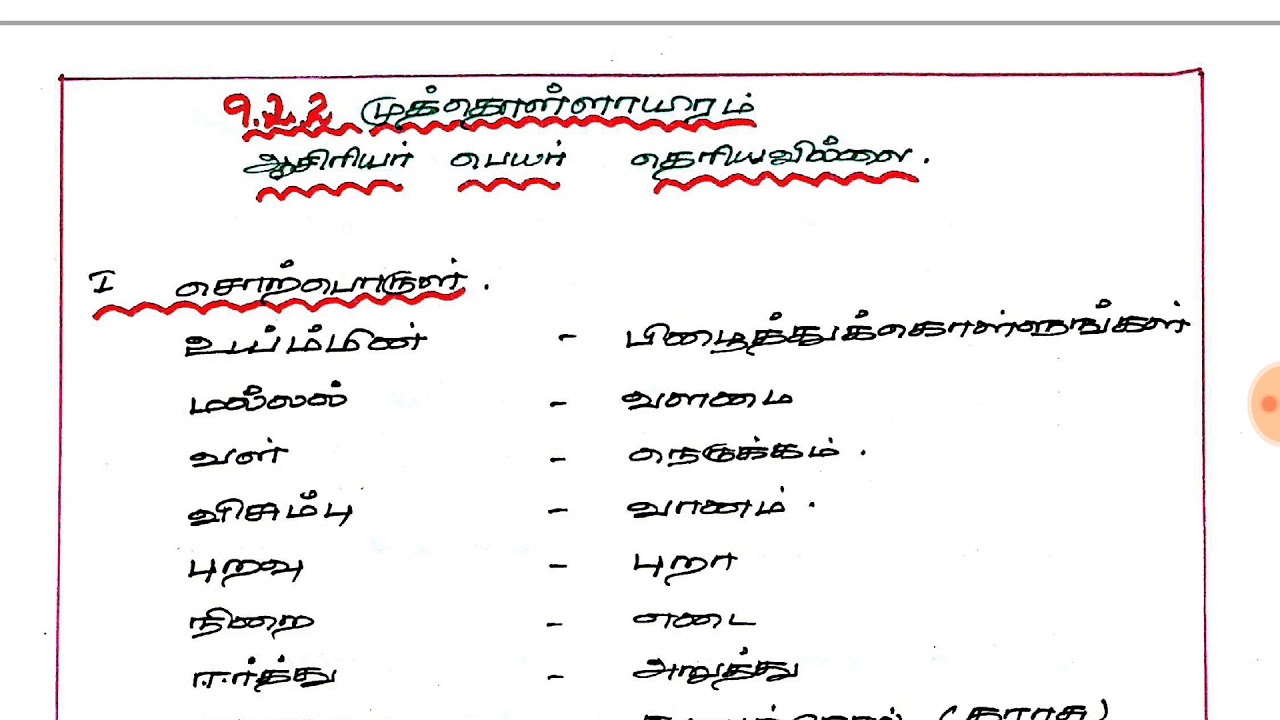 9.2.2 முத்தொள்ளாயரம்
ஆசிரியர் பெயர் தெரியவில்லை.
I சொற்பொருள்.
உய்ம்மின் - பிழைத்துக்கொள்ளுங்கள்
மல்லல் - வளமை
வள் - நெடுக்கம்.
விசும்பு - வானம்.
புறவு - புறா
நிறை - எடை
ஈர்த்து - அறுத்து